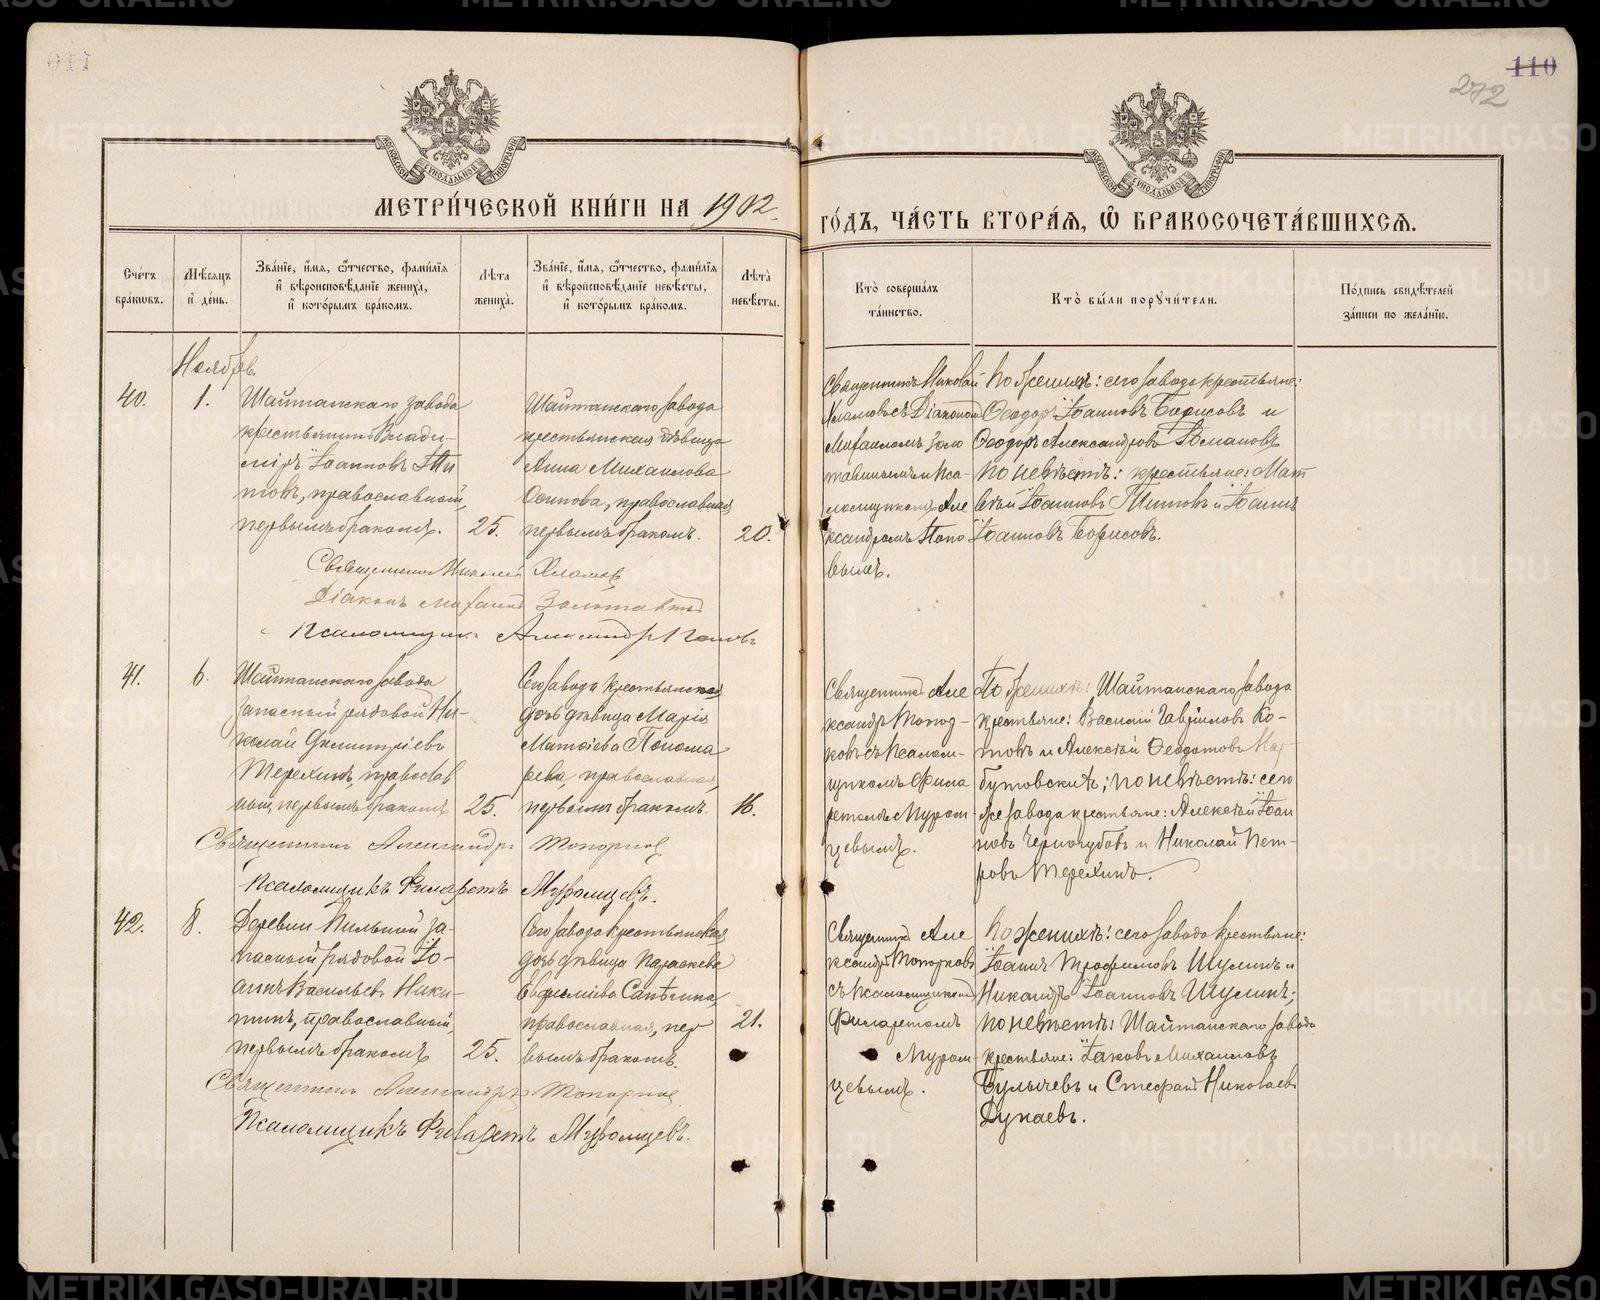 110
272
МЕТРИ́ЧЕСКОЙ КНИ́ГИ НА 1912
ГО́ДЪ, ЧА́СТЬ ВТОРА́Я, Ѽ БРАКОСОЧЕТА́ВШИХСЯ.
МОСКОВСКОЙ СѴНОДАЛЬНОЙ ТИПОГРАФІИ
МОСКОВСКОЙ СѴНОДАЛЬНОЙ ТИПОГРАФІИ
Сче́тъ бра́ковъ.
Мѣ́сяцъ и҆ де́нь.
Зва́нїе, и҆́мя, ѻ҆́тчество, фами́лїя и҆ вѣроисповѣ́данїе жениха̀, и҆ кото́рымъ бра́комъ.
Лѣ́та жениха̀.
Зва́нїе, и҆́мя, ѻ҆́тчество, фами́лїя и҆ вѣроисповѣ́данїе невѣ́сты, и҆ кото́рымъ бра́комъ.
Лѣ́та невѣ́сты.
Кто̀ соверша́лъ та́инство.
Кто̀ бы́ли порꙋчи́тели.
По́дпись свидѣ́телей за́писи по жела́нїю.
Ноябрь
40.
1.
Шайтанскаго завода
крестьянинъ Влади-
міръ Іоанновъ Ти
товъ, православный,
первымъ бракомъ.
25.
Шайтанскаго завода
крестьянская дѣвица
Анна Михаилова
Осипова, православная,
первымъ бракомъ.
20.
Священникъ Николай
Хламовъ съ Діакономъ
Михаиломъ Золо
тавинымъ и Пса-
ломщикомъ Але
ксандромъ Попо
вымъ.
По женихѣ: сего завода крестьяне:
Ѳеодоръ Іоанновъ Борисовъ и
Ѳеодоръ Александровъ Романовъ
по невѣстѣ: крестьяне: Мат
вѣй Іоанновъ Титовъ и Іоаннъ
Іоанновъ Борисовъ.
Священникъ Николай Хламовъ
Діаконъ Михаилъ Золотавинъ
Псаломщикъ Александръ Поповъ
41.
6.
Шайтанскаго завода
запасный рядовой Ни-
колай Димитріевъ
Терехинъ, православ
ный, первымъ бракомъ
25.
Сего завода крестьянская
дочь дѣвица Марія
Матѳіева Понома
рева, православная,
первымъ бракомъ.
16.
Священникъ Але
ксандръ Топор-
ковъ съ Псалом-
щикомъ Фила
ретомъ Муром-
цевымъ.
По женихѣ: Шайтанскаго завода
крестьяне: Василій Гавріиловъ Ко-
товъ и Алексѣй Ѳеодотовъ
по невѣстѣ: сего
же завода крестьяне: Алексѣй Іоан
новъ Черногубовъ и Николай Пет-
ровъ Терехинъ.
Священникъ Александръ Топорковъ
Псаломщикъ Филаретъ Муромцевъ.
42.
8.
Деревни Кильмий за-
пасный рядовой Іо-
аннъ Васильевъ Ники-
тинъ, православный,
первымъ бракомъ
25.
Сего завода крестьянская
дочь дѣвица Параскева
православная, пер
вымъ бракомъ.
21.
Священникъ Але
ксандръ Топорковъ
съ Псаломщикомъ
Филаретомъ
Муром-
цевымъ.
По женихѣ: сего завода крестьяне:
Іоаннъ Трофимовъ Шулинъ и
Никандръ Іоанновъ Шулинъ;
по невѣстѣ: Шайтанскаго завода
крестьяне: Іаковъ Михаиловъ
Булычевъ и Стефанъ Николаевъ
Дунаевъ.
Священникъ Александръ Топорковъ
Псаломщикъ Филаретъ Муромцевъ.
METRIKI.GASO-URAL.RU